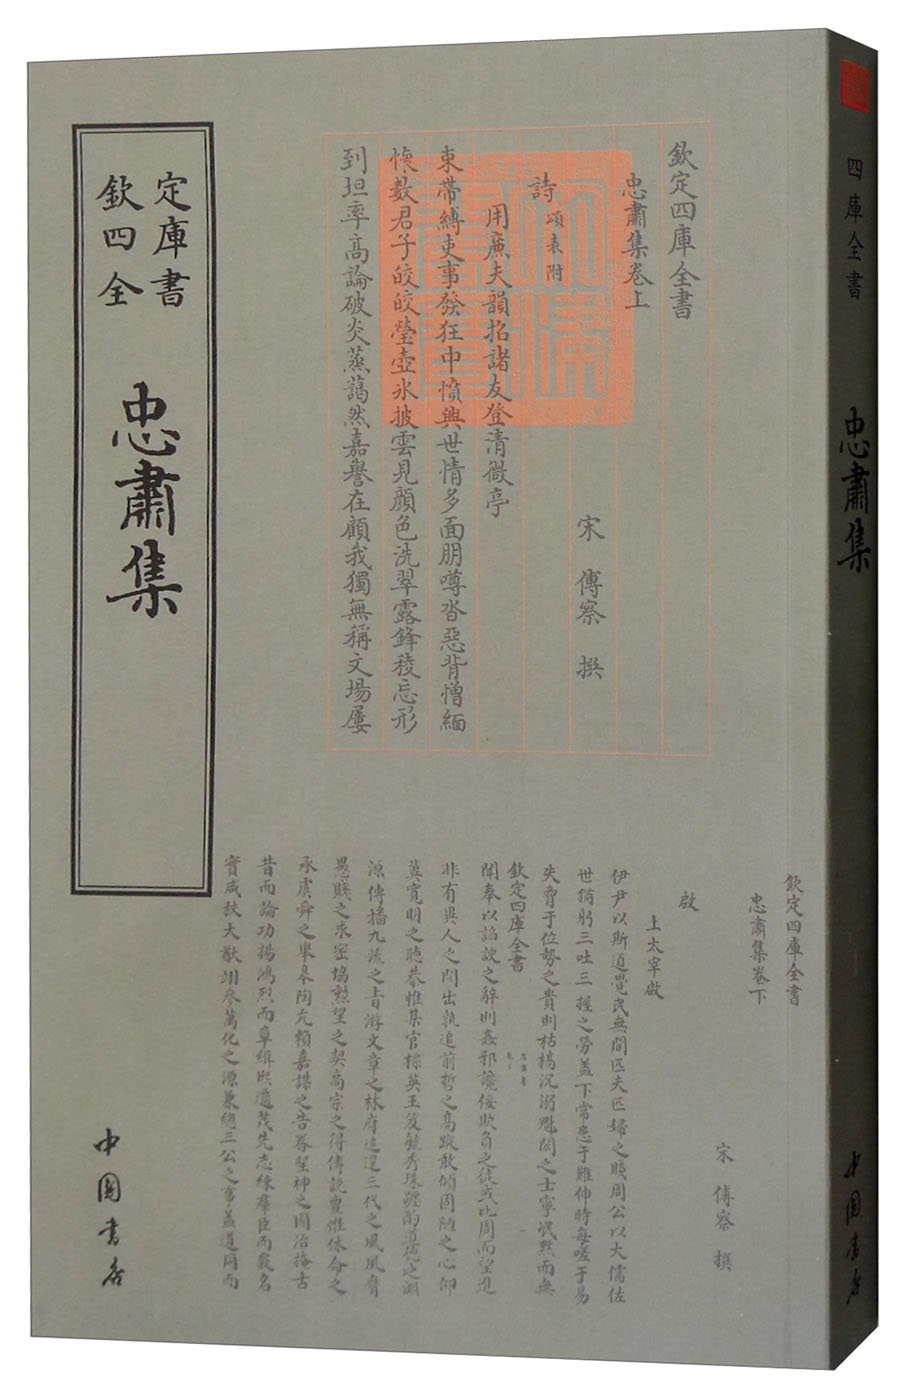 欽定
四庫
全書
忠肅集
中國书店
欽定四庫全書
忠肅集卷上
宋 傅察 撰
詩頌表附
用廉夫韻招諸友登清微亭
束帶縛吏事發狂中憤與世情多面朋噂沓惡背憎緬
懷數君子皎皎瑩壺氷披雲見顔色洗翠露鋒稜忘形
到坦率高論破炎蒸藹然嘉譽在顧我獨無稱文場屢
欽定四庫全書
忠肅集卷下
宋 傅察 撰
啟
上太宰啟
伊尹以斯道覺民無間匹夫匹婦之賤周公以大儒佐
世猶躬三吐三握之勞蓋下當患于難伸時每嗟于易
失脅于位勢之貴則枯槁沉溺魁閎之士寧恨黙而無
欽定四庫全書
聞奉以諂諛之辭則姦邪讒佞欺負之徒或比周而望進
非有異人之間出孰追前哲之高蹤敢傾固陋之心仰
冀寬明之聽恭惟某官
源傳播九流之上游文章之林府追還三代之風
愚賤之求密協勲望之契高宗之得傅說實惟休命之
承虞舜之舉皋陶允賴嘉謀之告
昔而論功揚鴻烈而章緝熙遹
實咸扶大猷翊參萬化之源兼總三公之事蓋道同而
四庫全書
忠肅集
中國书店